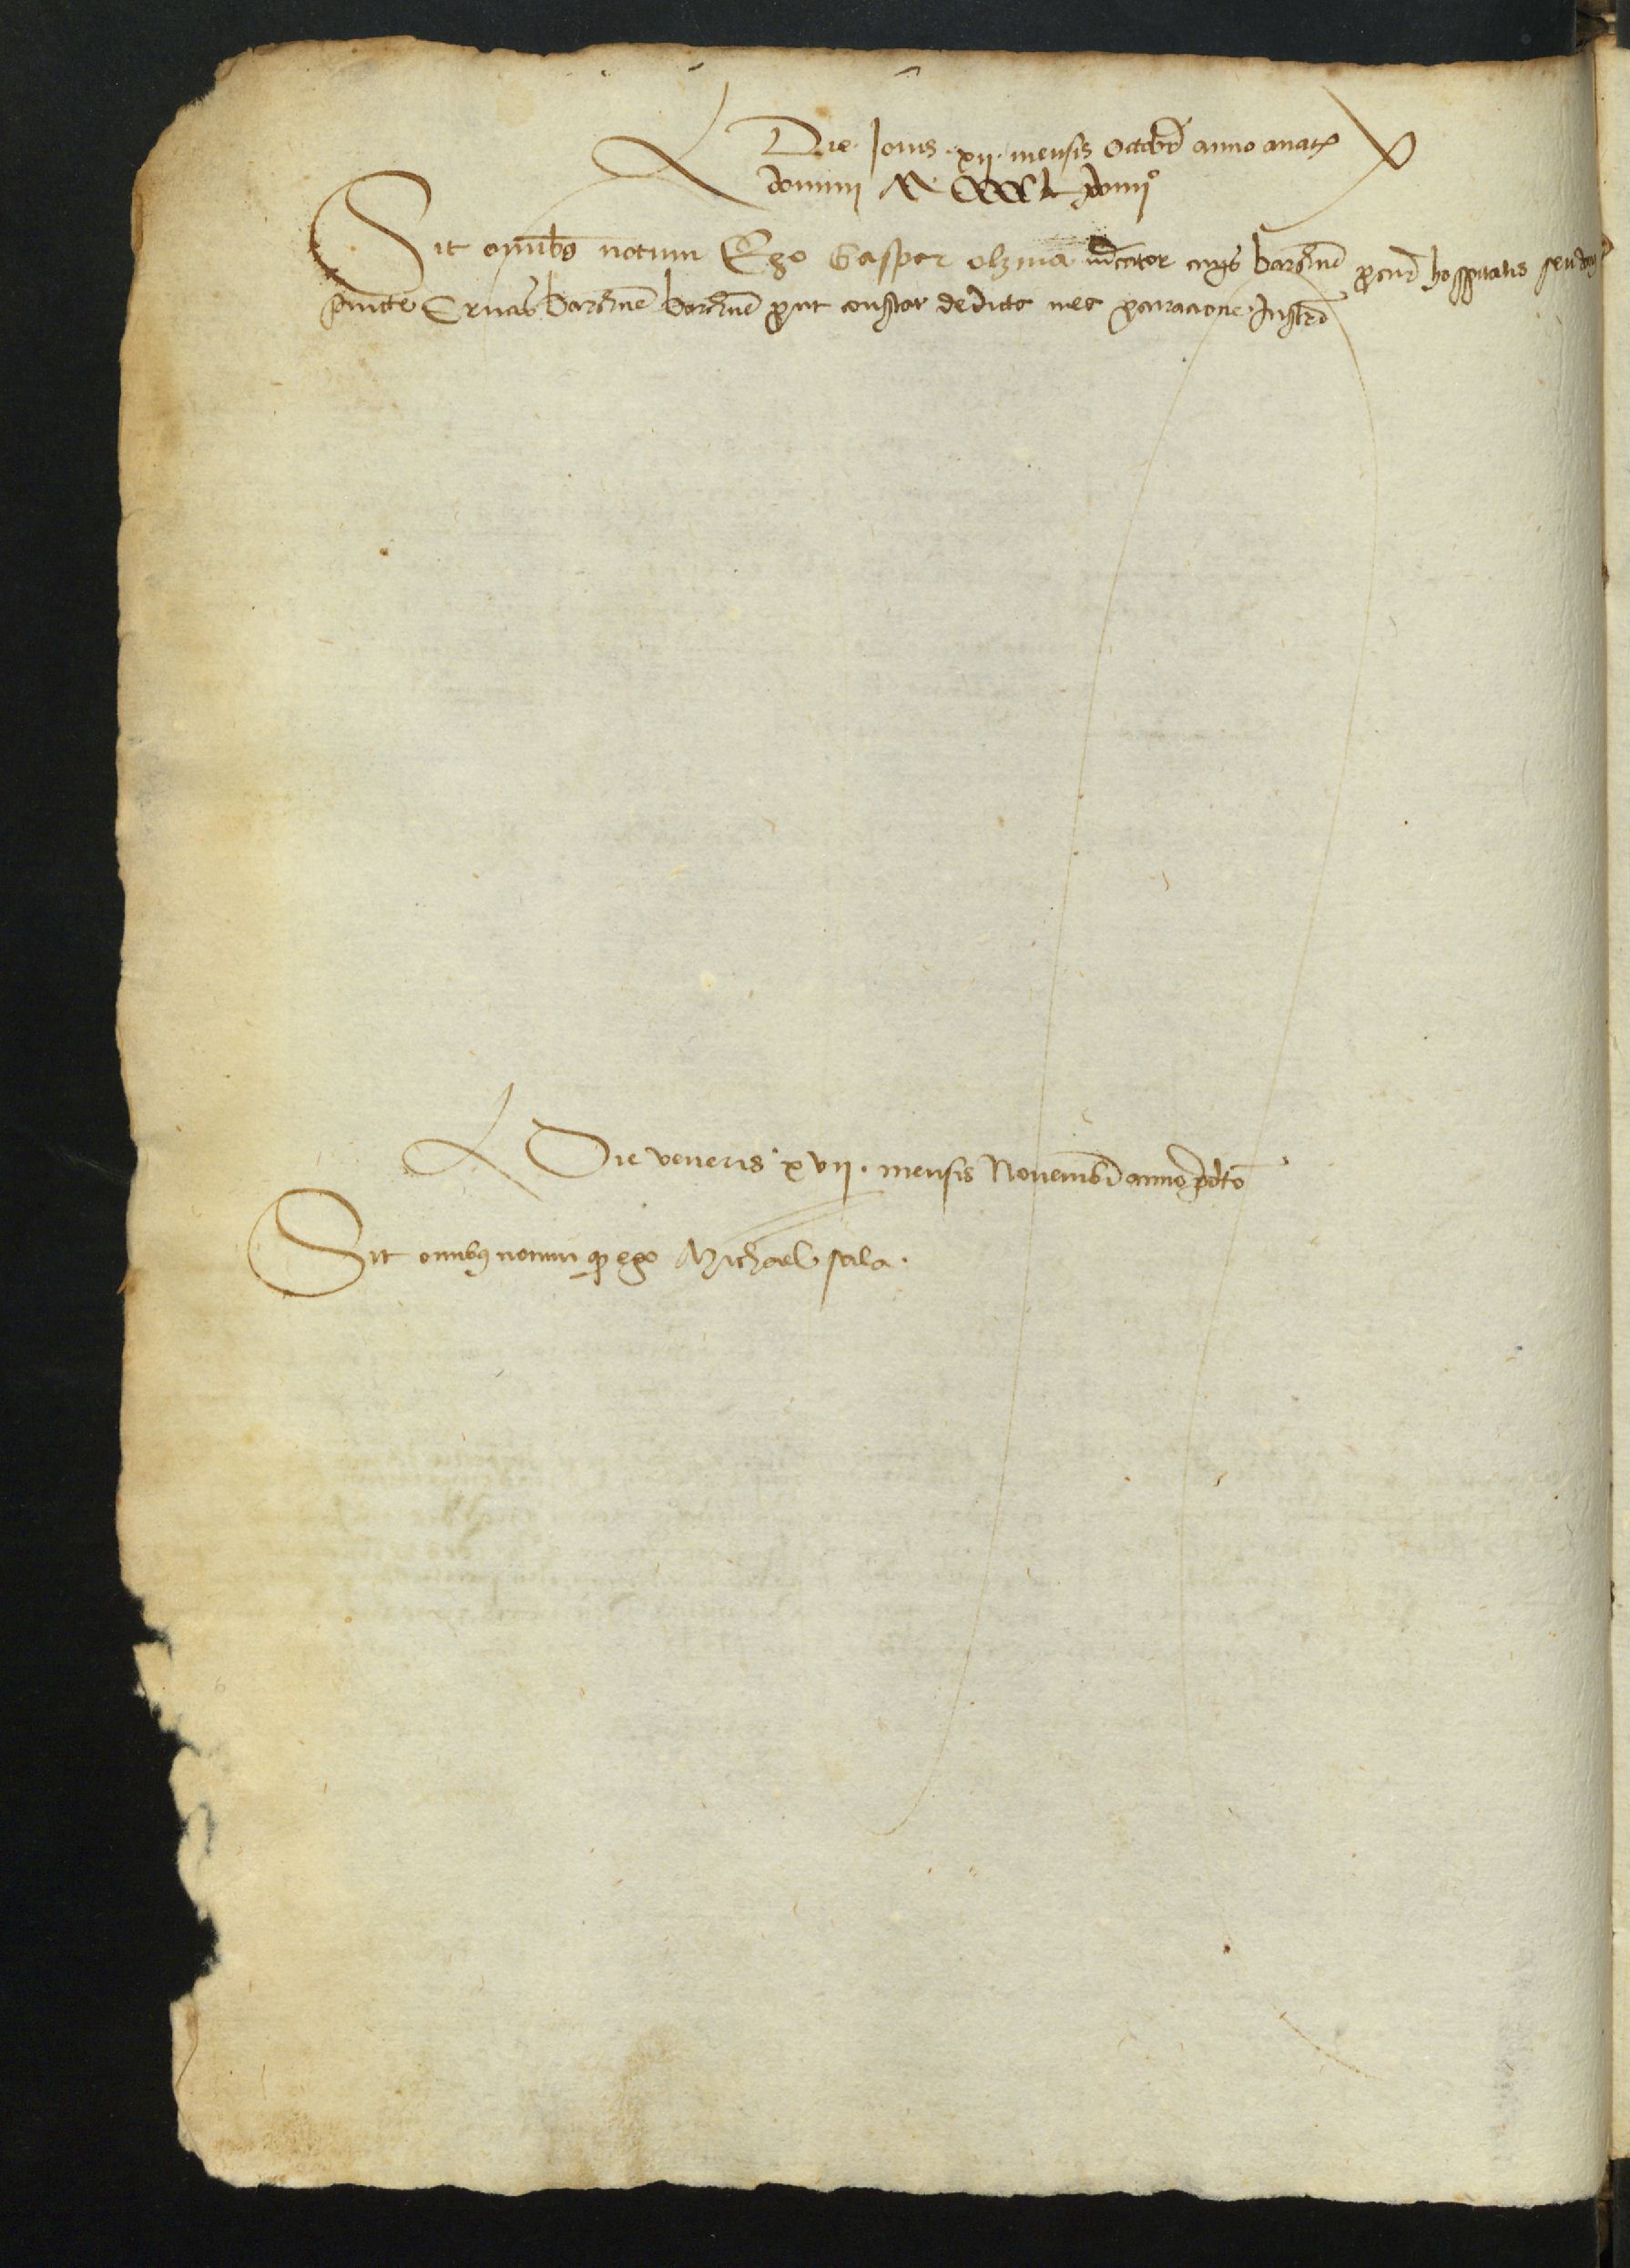 Die Jovis .xii. mensis Octobr anno a nat
domini M CCCC L
Sit omnibus notum Ego Gaspar olzina mcator civis barchne procur hospitalis seu dom
sancte Crucis barchne barchne prout constat de dicta mea procuracione Instr
Die veneris xvii. mensis Novembr anno pdto
Sit omnibus notum q ego Michael sala.